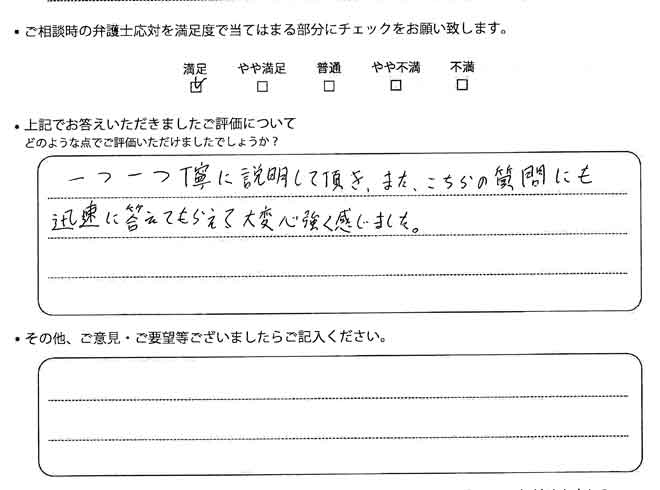 • ご相談時の弁護士応対を満足度で当てはまる部分にチェックをお願い致します。
満足 やや満足 普通 やや不満 不満
☑ □ □ □ □
• 上記でお答えいただきましたご評価について
どのような点でご評価いただけましたでしょうか？
一つ一つ丁寧に説明して頂き、また、こちらの質問にも
迅速に答えてもらえて大変心強く感じました。
• その他、ご意見・ご要望等ございましたらご記入ください。